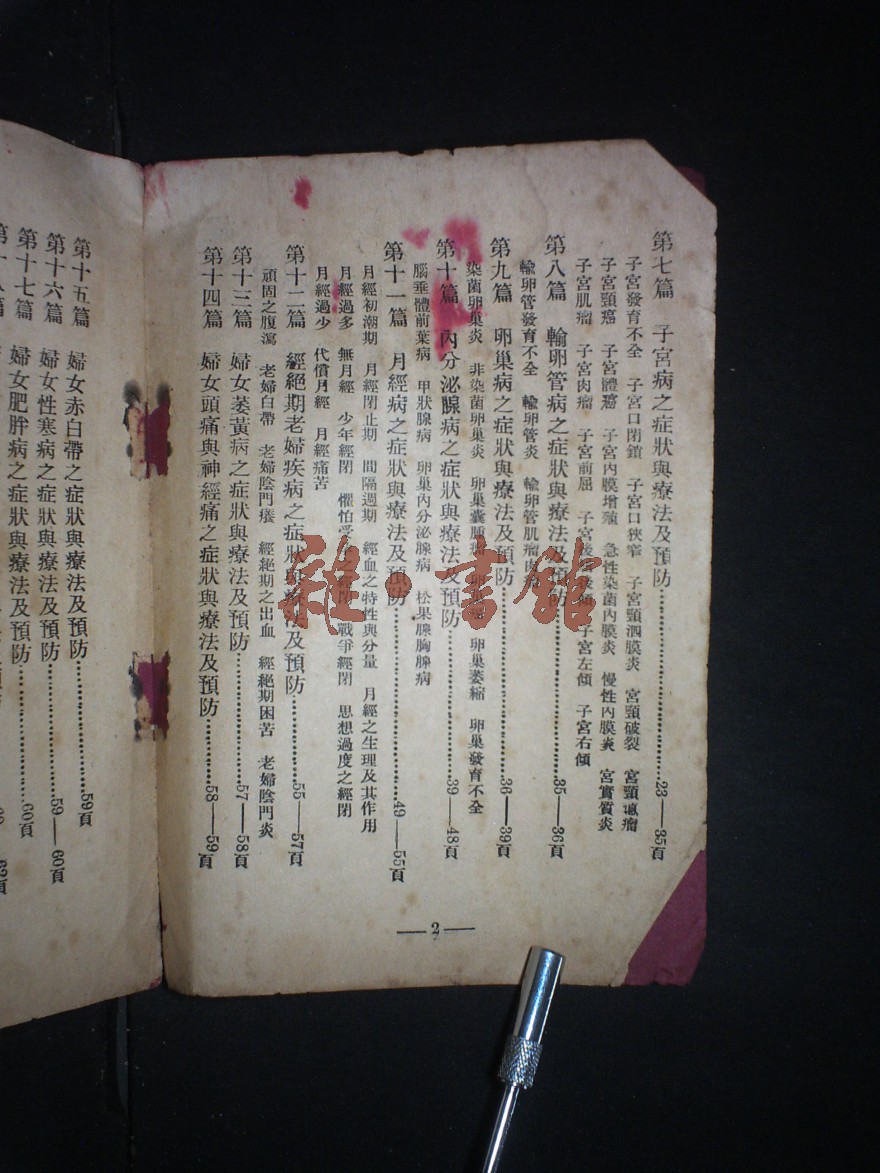 第七篇 子宮病之症狀與療法及預防……………………23—35頁
子宮發育不全 子宮口閉鎖 子宮口狹窄 子宮頸涸膜炎 宮頸破裂 宮頸瘜瘤
子宮頸癌 子宮體癌 子宮內膜增殖 急性染菌內膜炎 慢性內膜炎 宮實質炎
子宮肌瘤 子宮肉瘤 子宮前屈 子宮後傾 子宮左傾 子宮右傾
第八篇 輸卵管病之症狀與療法及預防……………………35—36頁
輸卵管發育不全 輸卵管炎 輸卵管肌瘤肉瘤
第九篇 卵巢病之症狀與療法及預防……………………36—39頁
染菌卵巢炎 非染菌卵巢炎 卵巢囊腫瘤 卵巢萎縮 卵巢發育不全
第十篇 內分泌腺病之症狀與療法及預防……………………39—48頁
腦垂體前葉病 甲狀腺病 卵巢內分泌腺病 松果腺胸腺病
第十一篇 月經病之症狀與療法及預防……………………49—55頁
月經初潮期 月經閉止期 間隔週期 經血之特性與分量 月經之生理及其作用
月經過多 無月經 少年經閉 懼怕受孕之經閉 戰爭經閉 思想過度之經閉
月經過少 代償月經 月經痛苦
第十二篇 經絕期老婦疾病之症狀與療法及預防……………………55—57頁
頑固之腹瀉 老婦白帶 老婦陰門癢 經絕期之出血 經絕期困苦 老婦陰門炎
第十三篇 婦女萎黃病之症狀與療法及預防……………………57—58頁
第十四篇 婦女頭痛與神經痛之症狀與療法及預防……………58—59頁
—2—
第十五篇 婦女赤白帶之症狀與療法及預防……………………59頁
第十六篇 婦女性寒病之症狀與療法及預防……………………59—60頁
第十七篇 婦女肥胖病之症狀與療法及預防……………………60頁
雜·書館